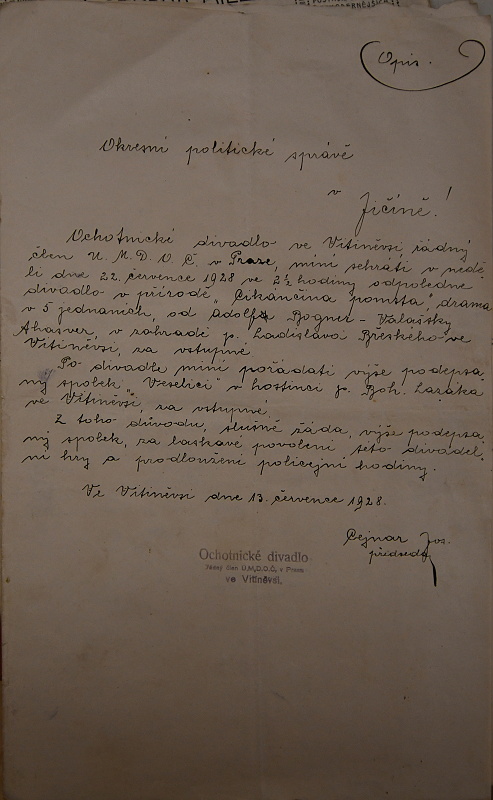 Opis.
Okresní politické správě
v Jičíně!
Ochotnické divadlo ve Vitiněvsi, řádný
člen U. M. D. O. Č. v Praze, míní sehráti v nedě
li dne 22. července 1928 ve 2½ hodiny odpoledne
divadlo v přírodě „Cikánčina pomsta", drama
v 5 jednáních, od Adolfa Bogner - Valašský
Ahasver, v zahradě p. Ladislava Břeského ve
Vitiněvsi, za vstupné.
Po divadle míní pořádati výše podepsa
ný spolek „Veselici" v hostinci p. Boh. Lazáka
ve Vitiněvsi, za vstupné.
Z toho důvodu, slušně žádá, výše podepsa
ný spolek, za laskavé povolení této divadel
ní hry a prodloužení policejní hodiny.
Ve Vitiněvsi dne 13. července 1928.
Cejnar Jos.
předseda
Ochotnické divadlo
řádný člen Ú.M.D.O.Č. v Praze
ve Vitiněvsi.